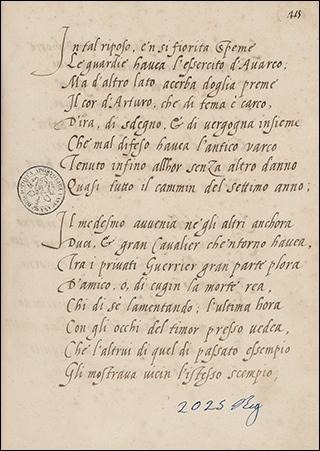 223
In tal riposo, e'n si fiorita speme
Le guardie havea l'essercito d'Avarco;
Ma d'altro lato acerba doglia preme
Il cor d'Arturo, che di tema è carco,
D'ira, di sdegno, & di vergogna insieme
Che mal difeso havea l'antico varco
Tenuto infino allhor senza altro danno
Quasi tutto il cammin del settimo anno;
Il medesmo avvenia ne gli altri anchora
Duci, & gran Cavalier che'ntorno havea,
Tra i privati Guerrier gran parte plora
D'amico, o, di cugin la morte rea,
Chi di sè lamentando; l'ultima hora
Con gli occhi del timor presso vedea,
Che l'altrui di quel di passato essempio
Gli mostrava vicin l'istesso scempio;
2025 Reg